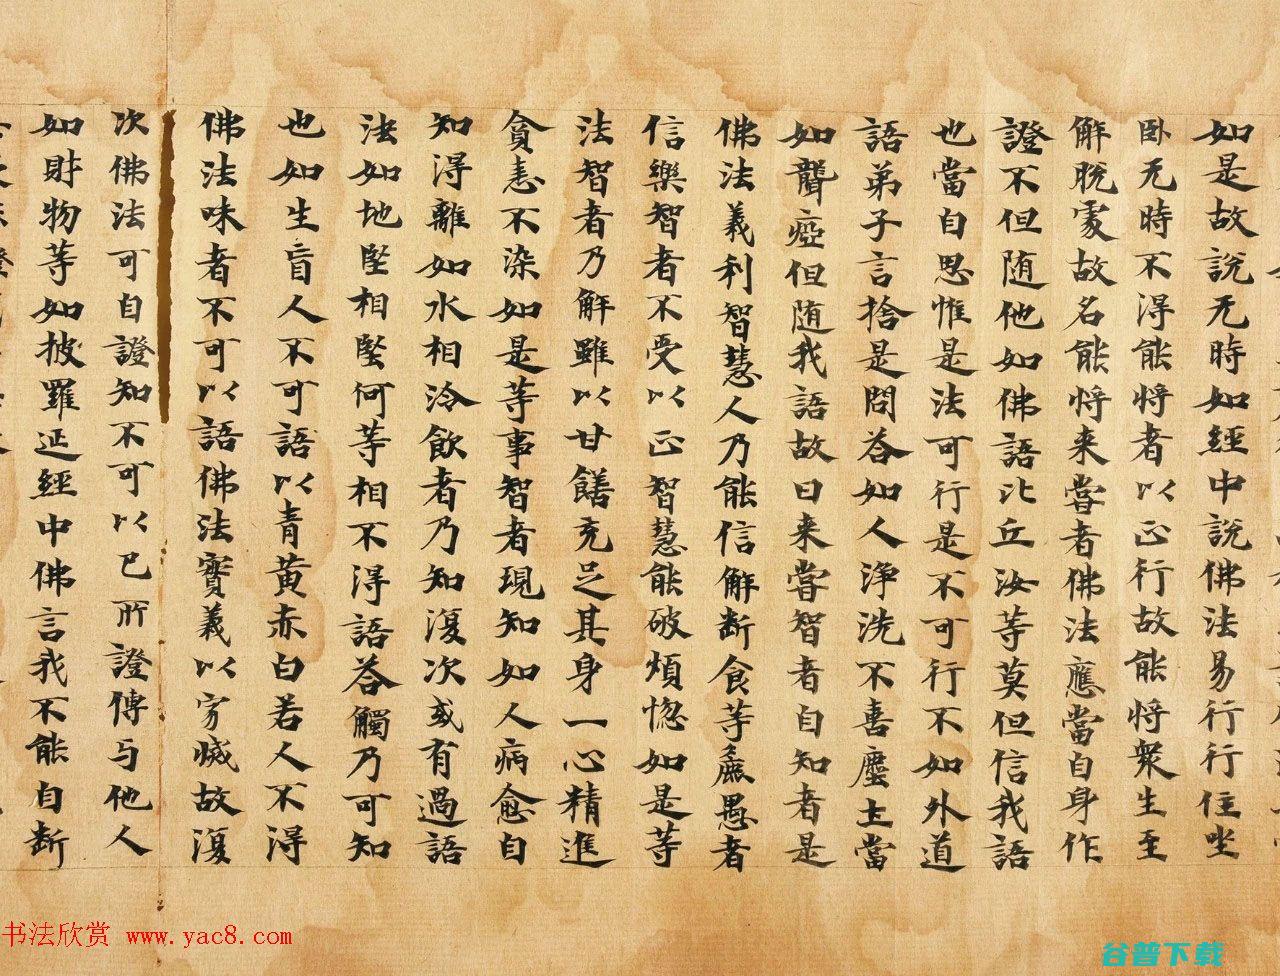 如是故說无時如經中說佛法易行行住坐
卧无時不得能將者以正行故能將衆生至
解脫處故名能將来嘗者佛法應當自身作
證不但随他如佛語比丘汝等莫但信我語
也當自思惟是法可行是不可行不如外道
語弟子言捨是問荅如人淨洗不喜塵土當
如聾瘂但随我語故曰来嘗智者自知者是
佛法義利智慧人乃能信解斷食等麁愚者
信樂智者不受以正智慧能破煩惚如是等
法智者乃解雖以甘饍充足其身一心精進
貪恚不染如是等事智者現知如人病愈自
知得離如水相冷飲者乃知復次或有過語
法如地堅相堅何等相不得語荅觸乃可知
也如生盲人不可語以青黄赤白若人不得
佛法味者不可以語佛法實義以寂滅故復
次佛法可自證知不可以已所證傳与他人
如財物等如披羅延經中佛言我不能自斷
书法欣赏 www.yac8.com
谷普下载